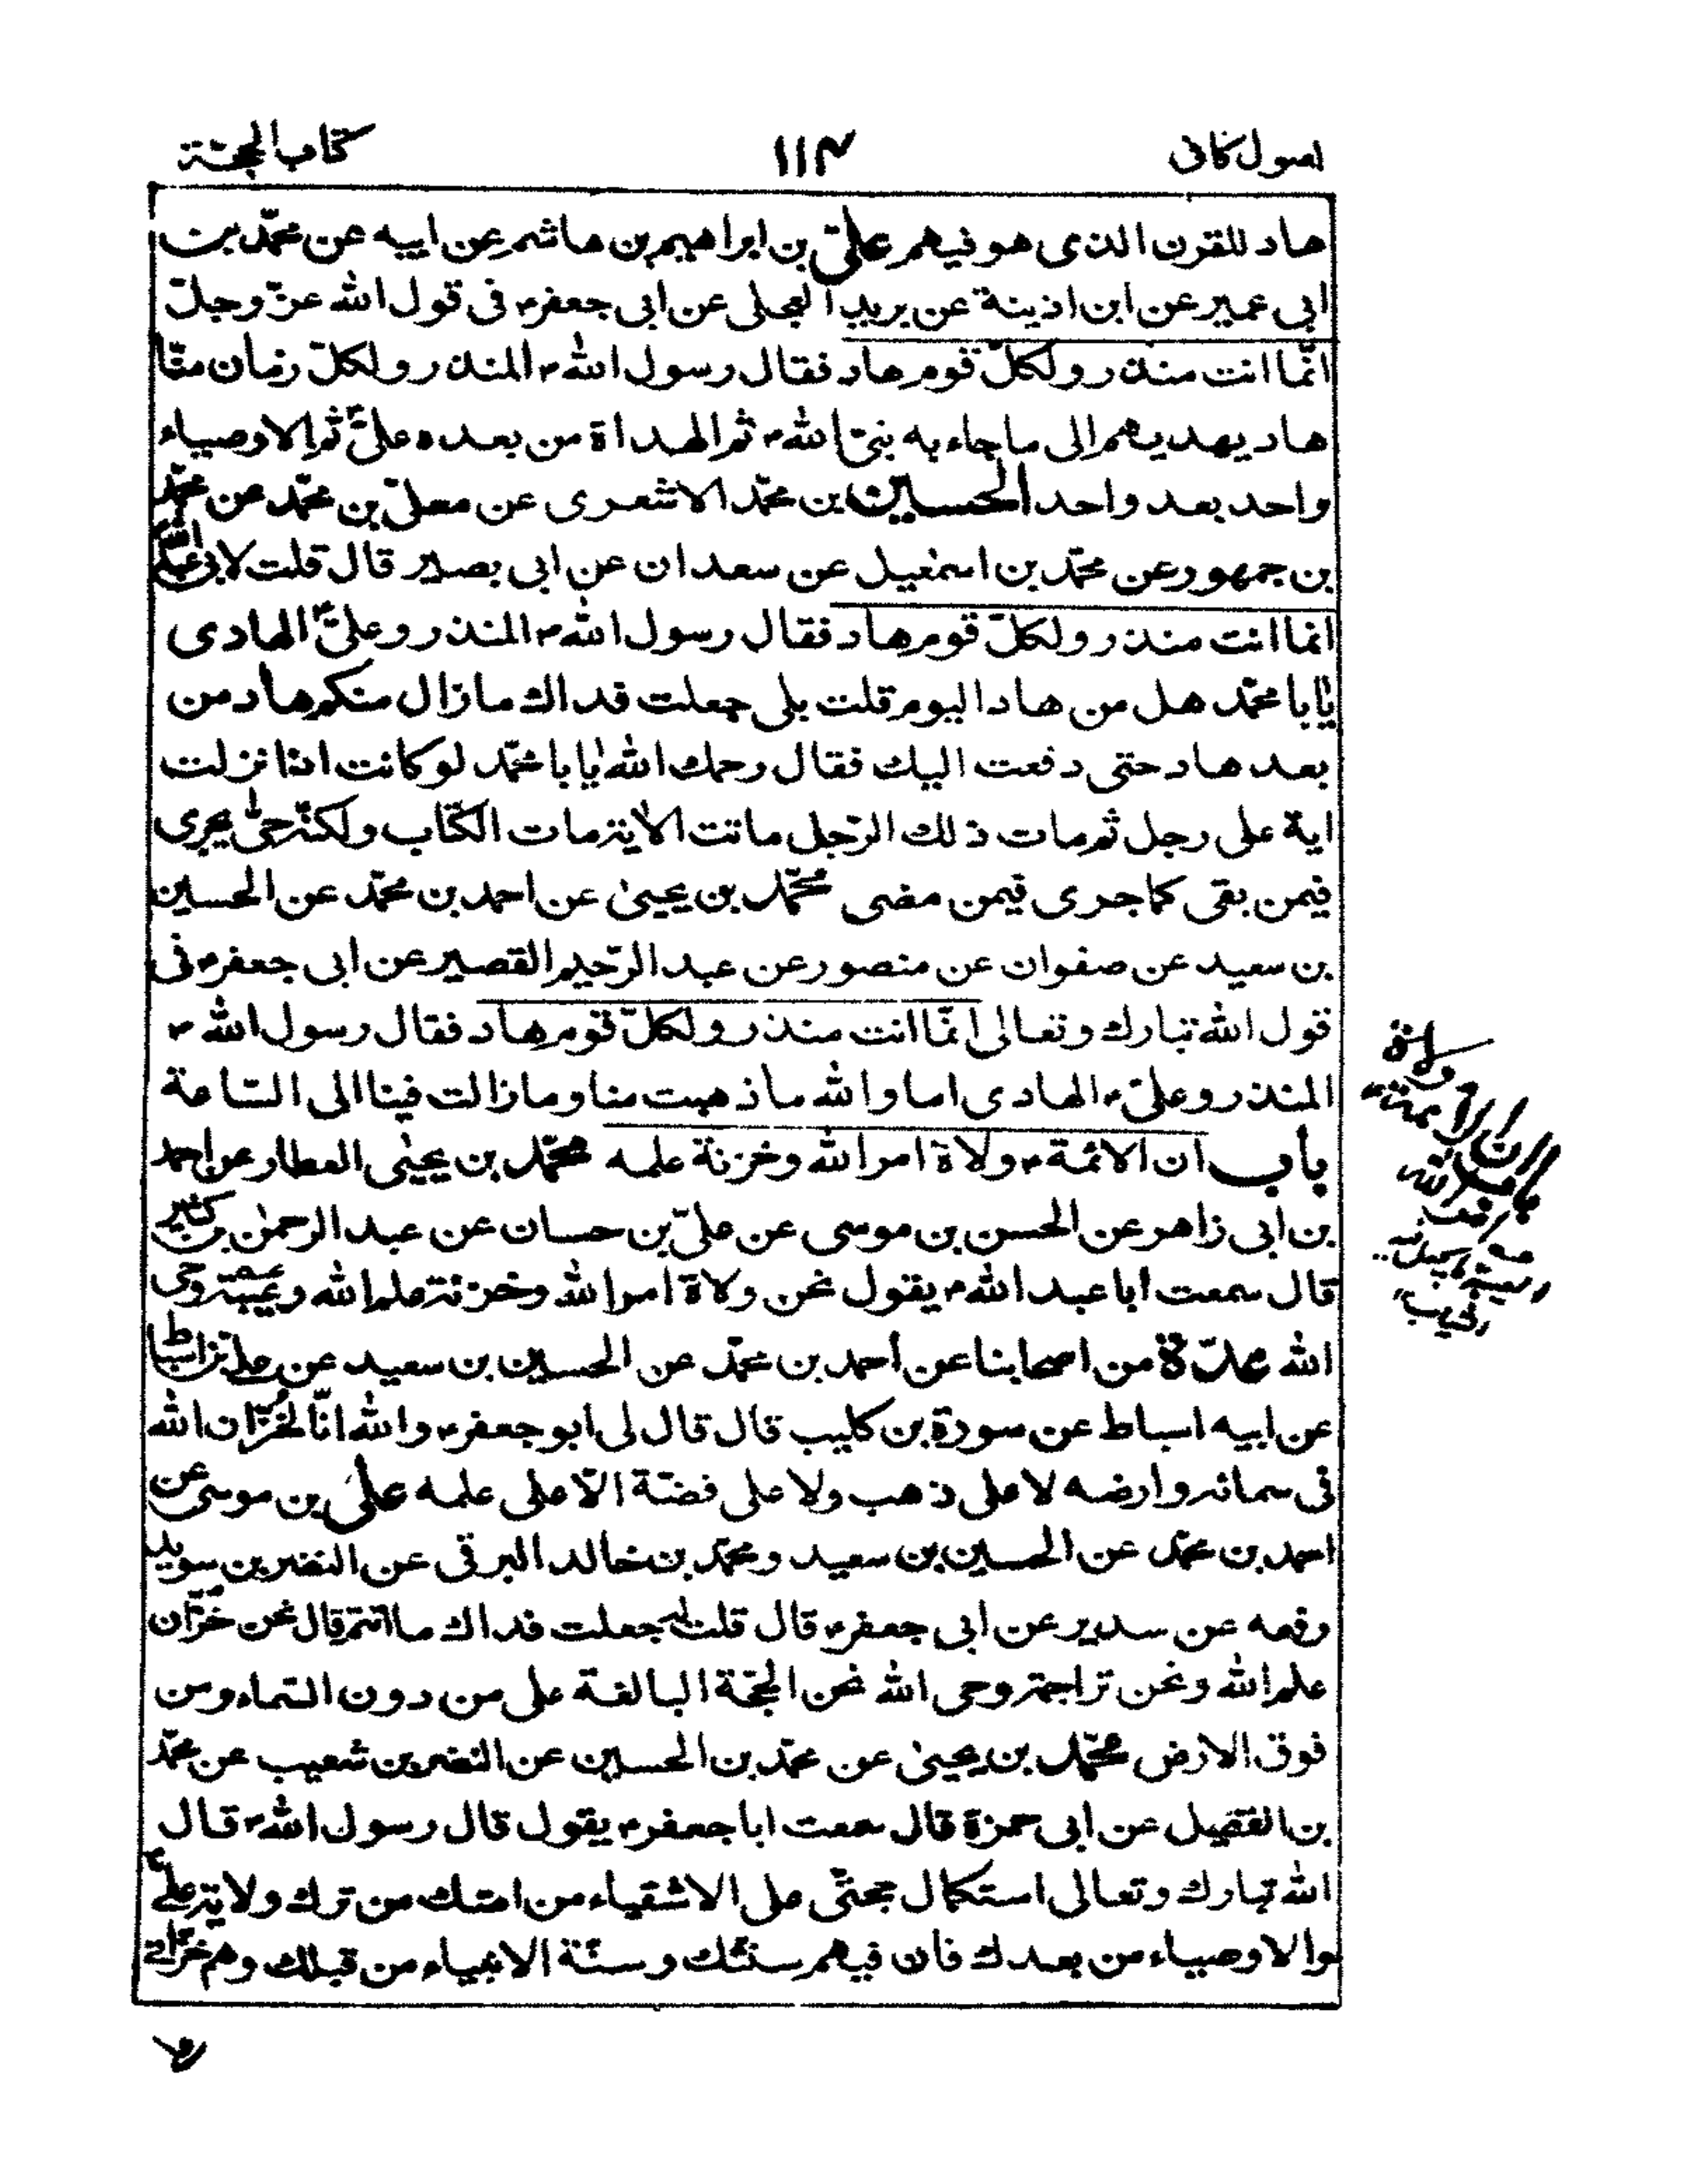 اصول كافى ١١٤ كتاب الحجة
هاد للقرن الذى هو فيهم على بن ابراهيم بن هاشم عن ابيه عن محمّد بن
ابى عمير عن ابن اذينة عن بريد العجلى عن ابى جعفرء فى قول الله عزّ وجلّ
انّما انت منذر ولكلّ قوم هاد فقال رسول اللهء المنذر ولكلّ زمان منّا
هاد يهديهم الى ما جاء به نبىّ اللهء ثم الهداة من بعده علىّ ثم الاوصياء
واحد بعد واحد الحسين بن محمّد الاشعرى عن معلىّ بن محمّد عن محمّد
بن جمهور عن محمّد بن اسمٰعيل عن سعدان عن ابى بصير قال قلت لابى عبد الله
انما انت منذر ولكلّ قوم هاد فقال رسول اللهء المنذر وعلىّ الهادى
يا با محمّد هل من هاد اليوم قلت بلى جعلت فداك ما زال منكم هاد من
بعد هاد حتى دفعت اليك فقال رحمك الله يا با محمّد لو كانت اذا نزلت
اية على رجل ثم مات ذلك الرّجل ماتت الاية مات الكتاب ولكنّه حىّ يجرى
فيمن بقى كما جرى فيمن مضى محمّد بن يحيىٰ عن احمد بن محمّد عن الحسين
بن سعيد عن صفوان عن منصور عن عبد الرّحيم القصير عن ابى جعفرء فى
قول الله تبارك وتعالى انّما انت منذر ولكلّ قوم هاد فقال رسول اللهء
المنذر وعلىّء الهادى اما والله ما ذهبت منا وما زالت فينا الى السّاعة
باب ان الائمةء ولاة امر الله وخزنة علمه محمّد بن يحيىٰ العطار عن احمد
بن ابى زاهر عن الحسن بن موسى عن علىّ بن حسان عن عبد الرحمٰن بن كثير
قال سمعت ابا عبد اللهء يقول نحن ولاة امر الله وخزنة علم الله وعيبة وحى
الله عدّة من اصحابنا عن احمد بن محمّد عن الحسين بن سعيد عن على بن اسباط
عن ابيه اسباط عن سورة بن كليب قال قال لى ابو جعفرء والله انّا لخزّان الله
فى سمائه وارضه لا على ذهب ولا على فضّة الّا على علمه علىّ بن موسى عن
احمد بن محمّد عن الحسين بن سعيد ومحمّد بن خالد البرقى عن النضر بن سويد
رفعه عن سدير عن ابى جعفرء قال قلت له جعلت فداك ما انتم قال نحن خزّان
علم الله ونحن تراجمة وحى الله نحن الحجّة البالغة على من دون السّماء ومن
فوق الارض محمّد بن يحيىٰ عن محمّد بن الحسين عن النضر بن شعيب عن محمّد
بن الفضيل عن ابى حمزة قال سمعت ابا جعفرء يقول قال رسول اللهء قال
الله تبارك وتعالى استكمال حجّتى على الاشقياء من امتك من ترك ولاية علىّ
والاوصياء من بعدك فان فيهم سنّتك وسنّة الانبياء من قبلك وهم خزّانى
ولاة
ان الائمة
باب